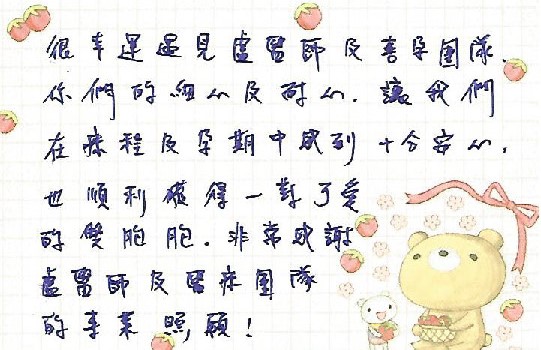 很幸運遇見盧醫師及喜孕團隊.
你們的細心及耐心.讓我們
在療程及孕期中感到十分安心,
也順利獲得一對可愛
的雙胞胎.非常感謝
盧醫師及醫療團隊
的專業照顧!